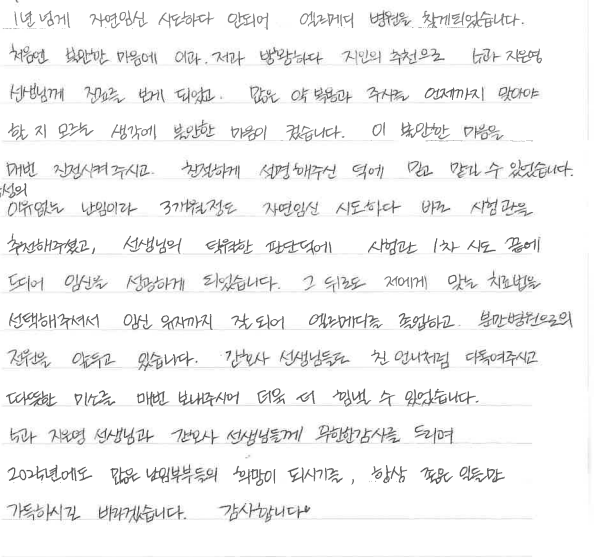 1년 넘게 자연임신 시도하다 안되어 엘리메디 병원을 찾게되었습니다.
처음엔 불안한 마음에 이과. 저과 방황하다 지인의 추천으로 5과 지은영
선생님께 진료를 보게 되었고. 많은 약 복용과 주사를 언제까지 맞아야
할 지 모르는 생각에 불안한 마음이 컸습니다. 이 불안한 마음을
매번 진정시켜주시고. 친절하게 설명해주신 덕에 믿고 맡길 수 있었습니다.
이유없는 난임이라 3개월정도 자연임신 시도하다 바로 시험관을
추천해주셨고, 선생님의 탁월한 판단덕에 시험관 1차 시도 끝에
드디어 임신을 성공하게 되었습니다. 그 뒤로도 저에게 맞는 치료법을
선택해주셔서 임신 유지까지 잘 되어 엘리메디를 졸업하고. 분만병원으로의
전원을 앞두고 있습니다. 간호사 선생님들도 친 언니처럼 다독여주시고
따뜻한 미소를 매번 보내주시어 더욱 더 힘낼 수 있었습니다.
5과 지은영 선생님과 간호사 선생님들께 무한한감사를 드리며
2025년에도 많은 난임부부들의 희망이 되시기를, 항상 좋은 일들만
가득하시길 바라겠습니다. 감사합니다.